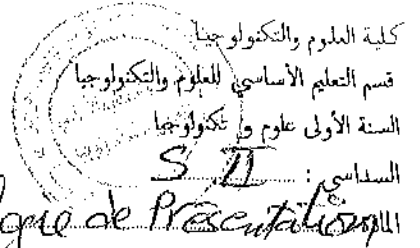 كلية العلوم والتكنولوجيا
قسم التعليم الأساسي للعلوم والتكنولوجيا
السنة الأولى علوم و تكنولوجيا
السداسي : S II
de Présentation